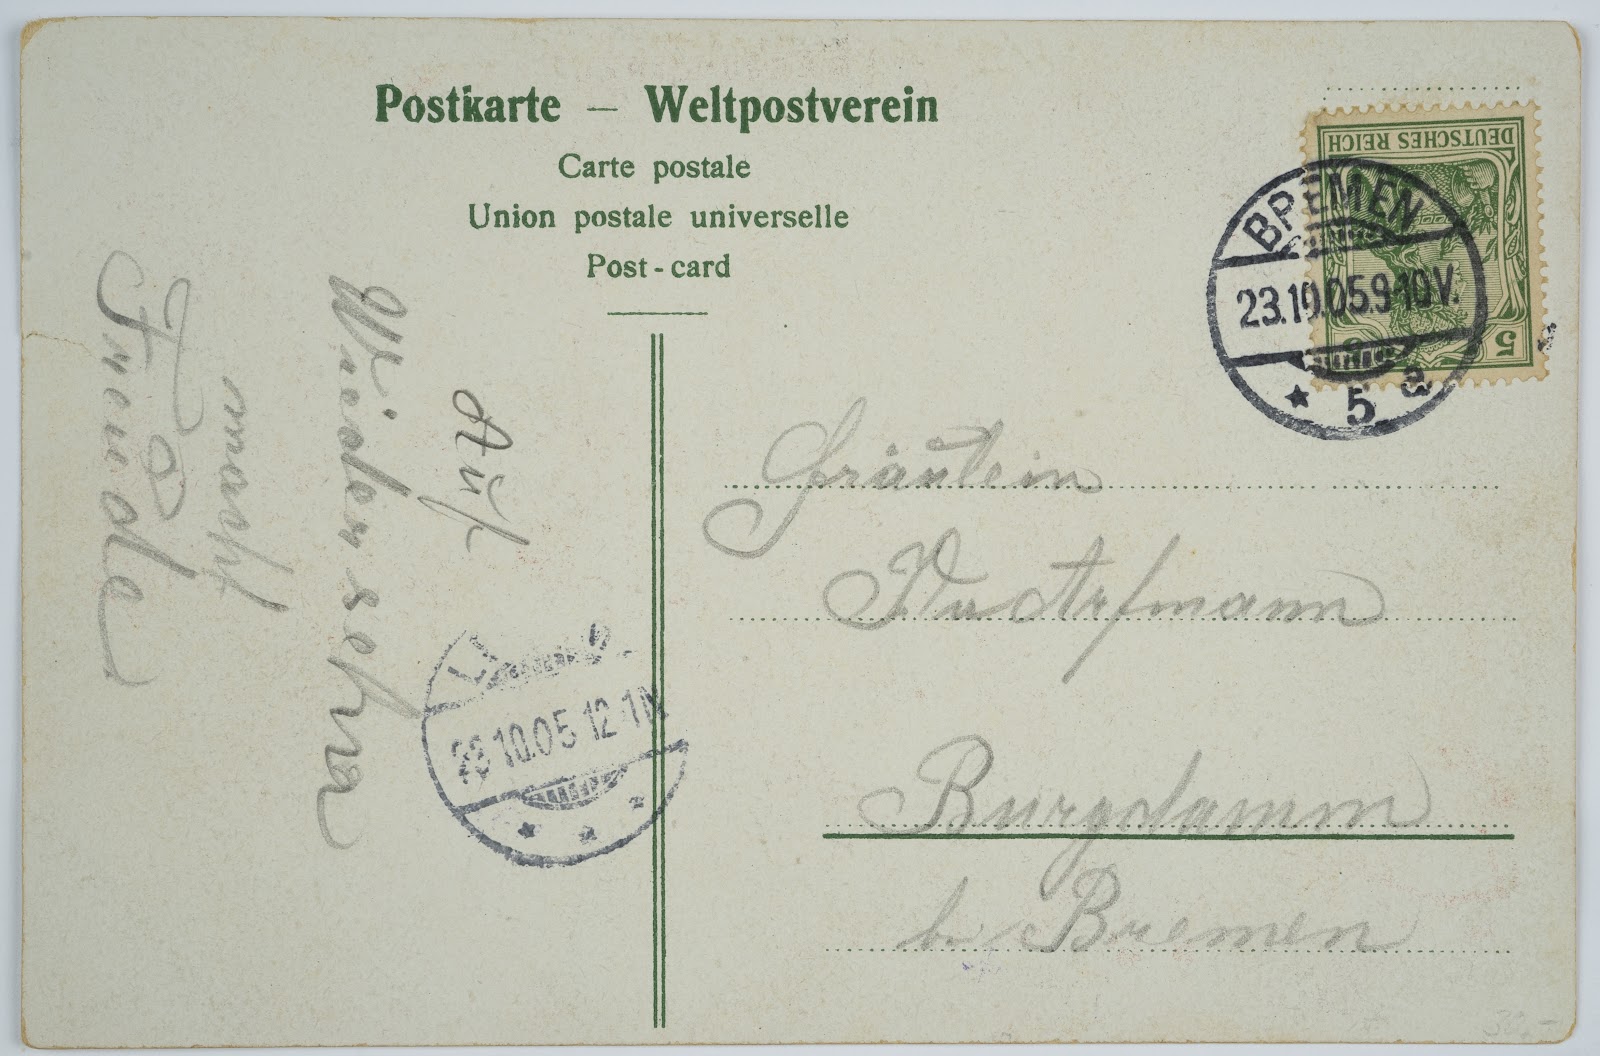 Postkarte — Weltpostverein
Carte postale
Union postale universelle
Post-card
DEUTSCHES REICH
5
BREMEN
23.10.05.9-10V.
* 5 a
Auf
Wiedersehn
macht
Freude
10.05 12-1N
* * *
Fräulein
Burgdamm
b. Bremen
30,-